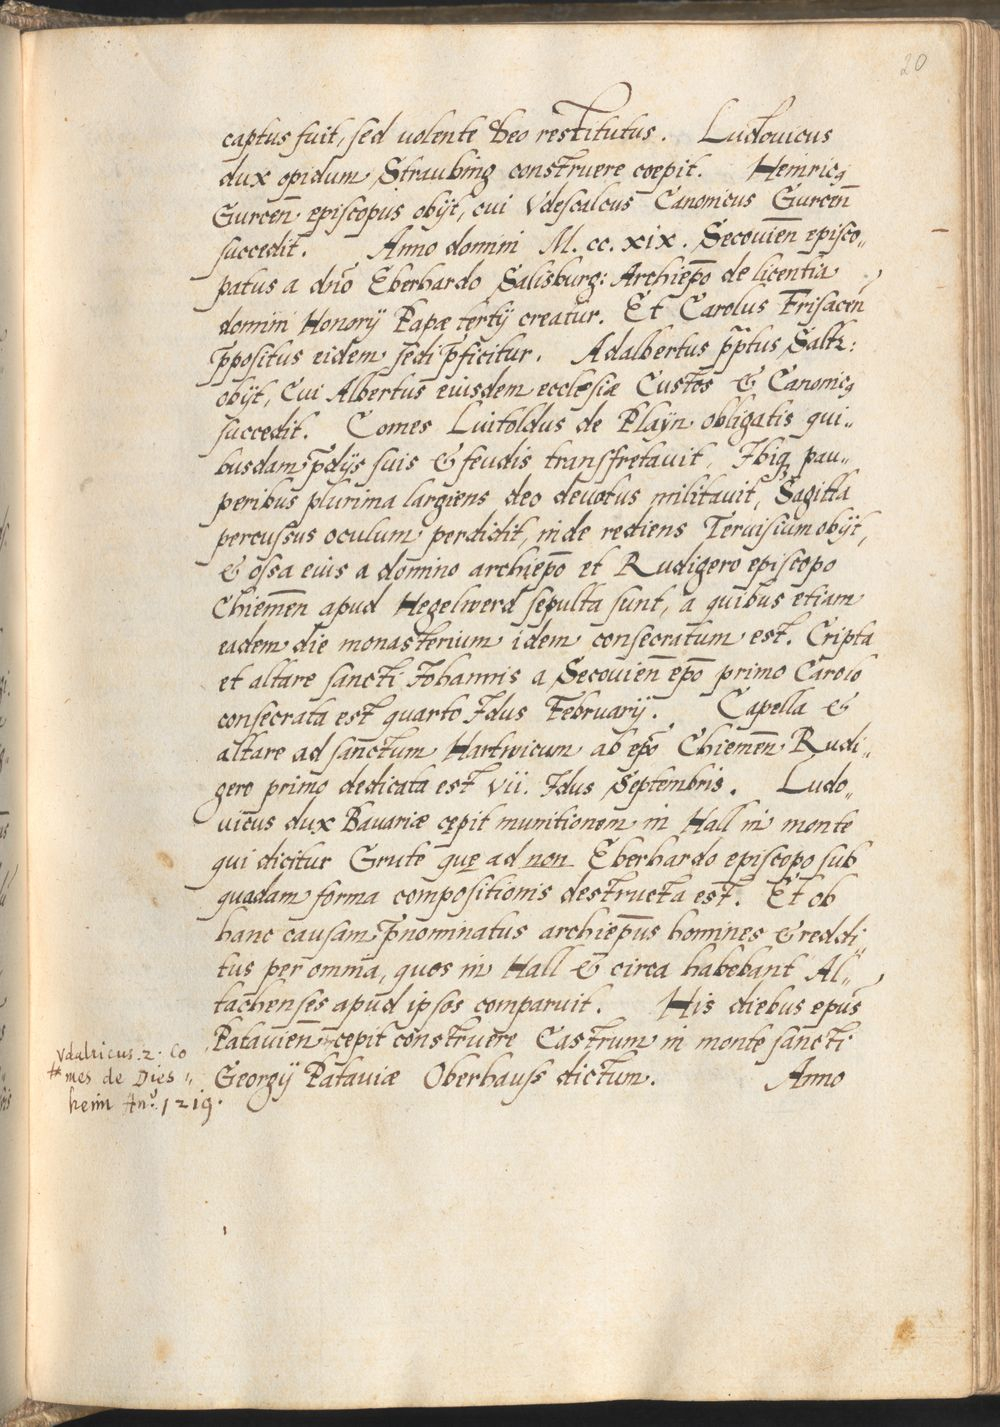 20
captus fuit, sed uolente Deo restitutus. Ludouicus
dux opidum Straubing construere coepit. Heinricꝯ
Gurceñ episcopus obijt, cui Vdescalcus Canonicus Gurceñ
succedit. Anno domini M. cc. xix. Secouieñ episco„
patus a dño Eberhardo Salisburg: Archiep̄o de licentia
domini Honorij Papæ tertij creatur. Et Carolus Frisaceñ
p̄positus eidem sedi p̄ficitur. Adalbertus p̄ptus Saltz:
obijt, Cui Albertus eiusdem ecclesiæ Custos & Canonicꝯ
succedit. Comes Luitoldus de Playn obligatis qui„
busdam p̄dijs suis & feudis transfretauit, Ibiqꝫ pau„
peribus plurima largiens deo deuotus militauit, Sagitta
percussus oculum perdidit, inde rediens Teruisium obijt,
& ossa eius a domino archiep̄o et Rudigero episcopo
Chiemeñ apud Hegelwerd sepulta sunt, a quibus etiam
eadem die monasterium idem consecratum est. Cripta
et altare sancti Iohannis a Secouieñ ep̄o primo Carolo
consecrata est quarto Idus Februarij. Capella &
altare ad sanctum Hartwicum ab ep̄o Chiemeñ Rudi„
gero primo dedicata est vii. Idus Septembris. Ludo„
uicus dux Bauariæ cepit munitionem in Hall in monte
qui dicitur Grute que ad non Eberhardo episcopo sub
quadam forma compositionis destructa est. Et ob
hanc causam p̄nominatus archiep̄us homines & reddi„
tus per omnia, quos in Hall & circa habebant Al„
tachenses apud ipsos comparuit. His diebus epus
Patauieñ cepit construere Castrum in monte sancti
Georgij Patauiæ Oberhauss dictum. Anno
Vdalricus .2. Co
mes de Dies„
heim An̄. 1219.